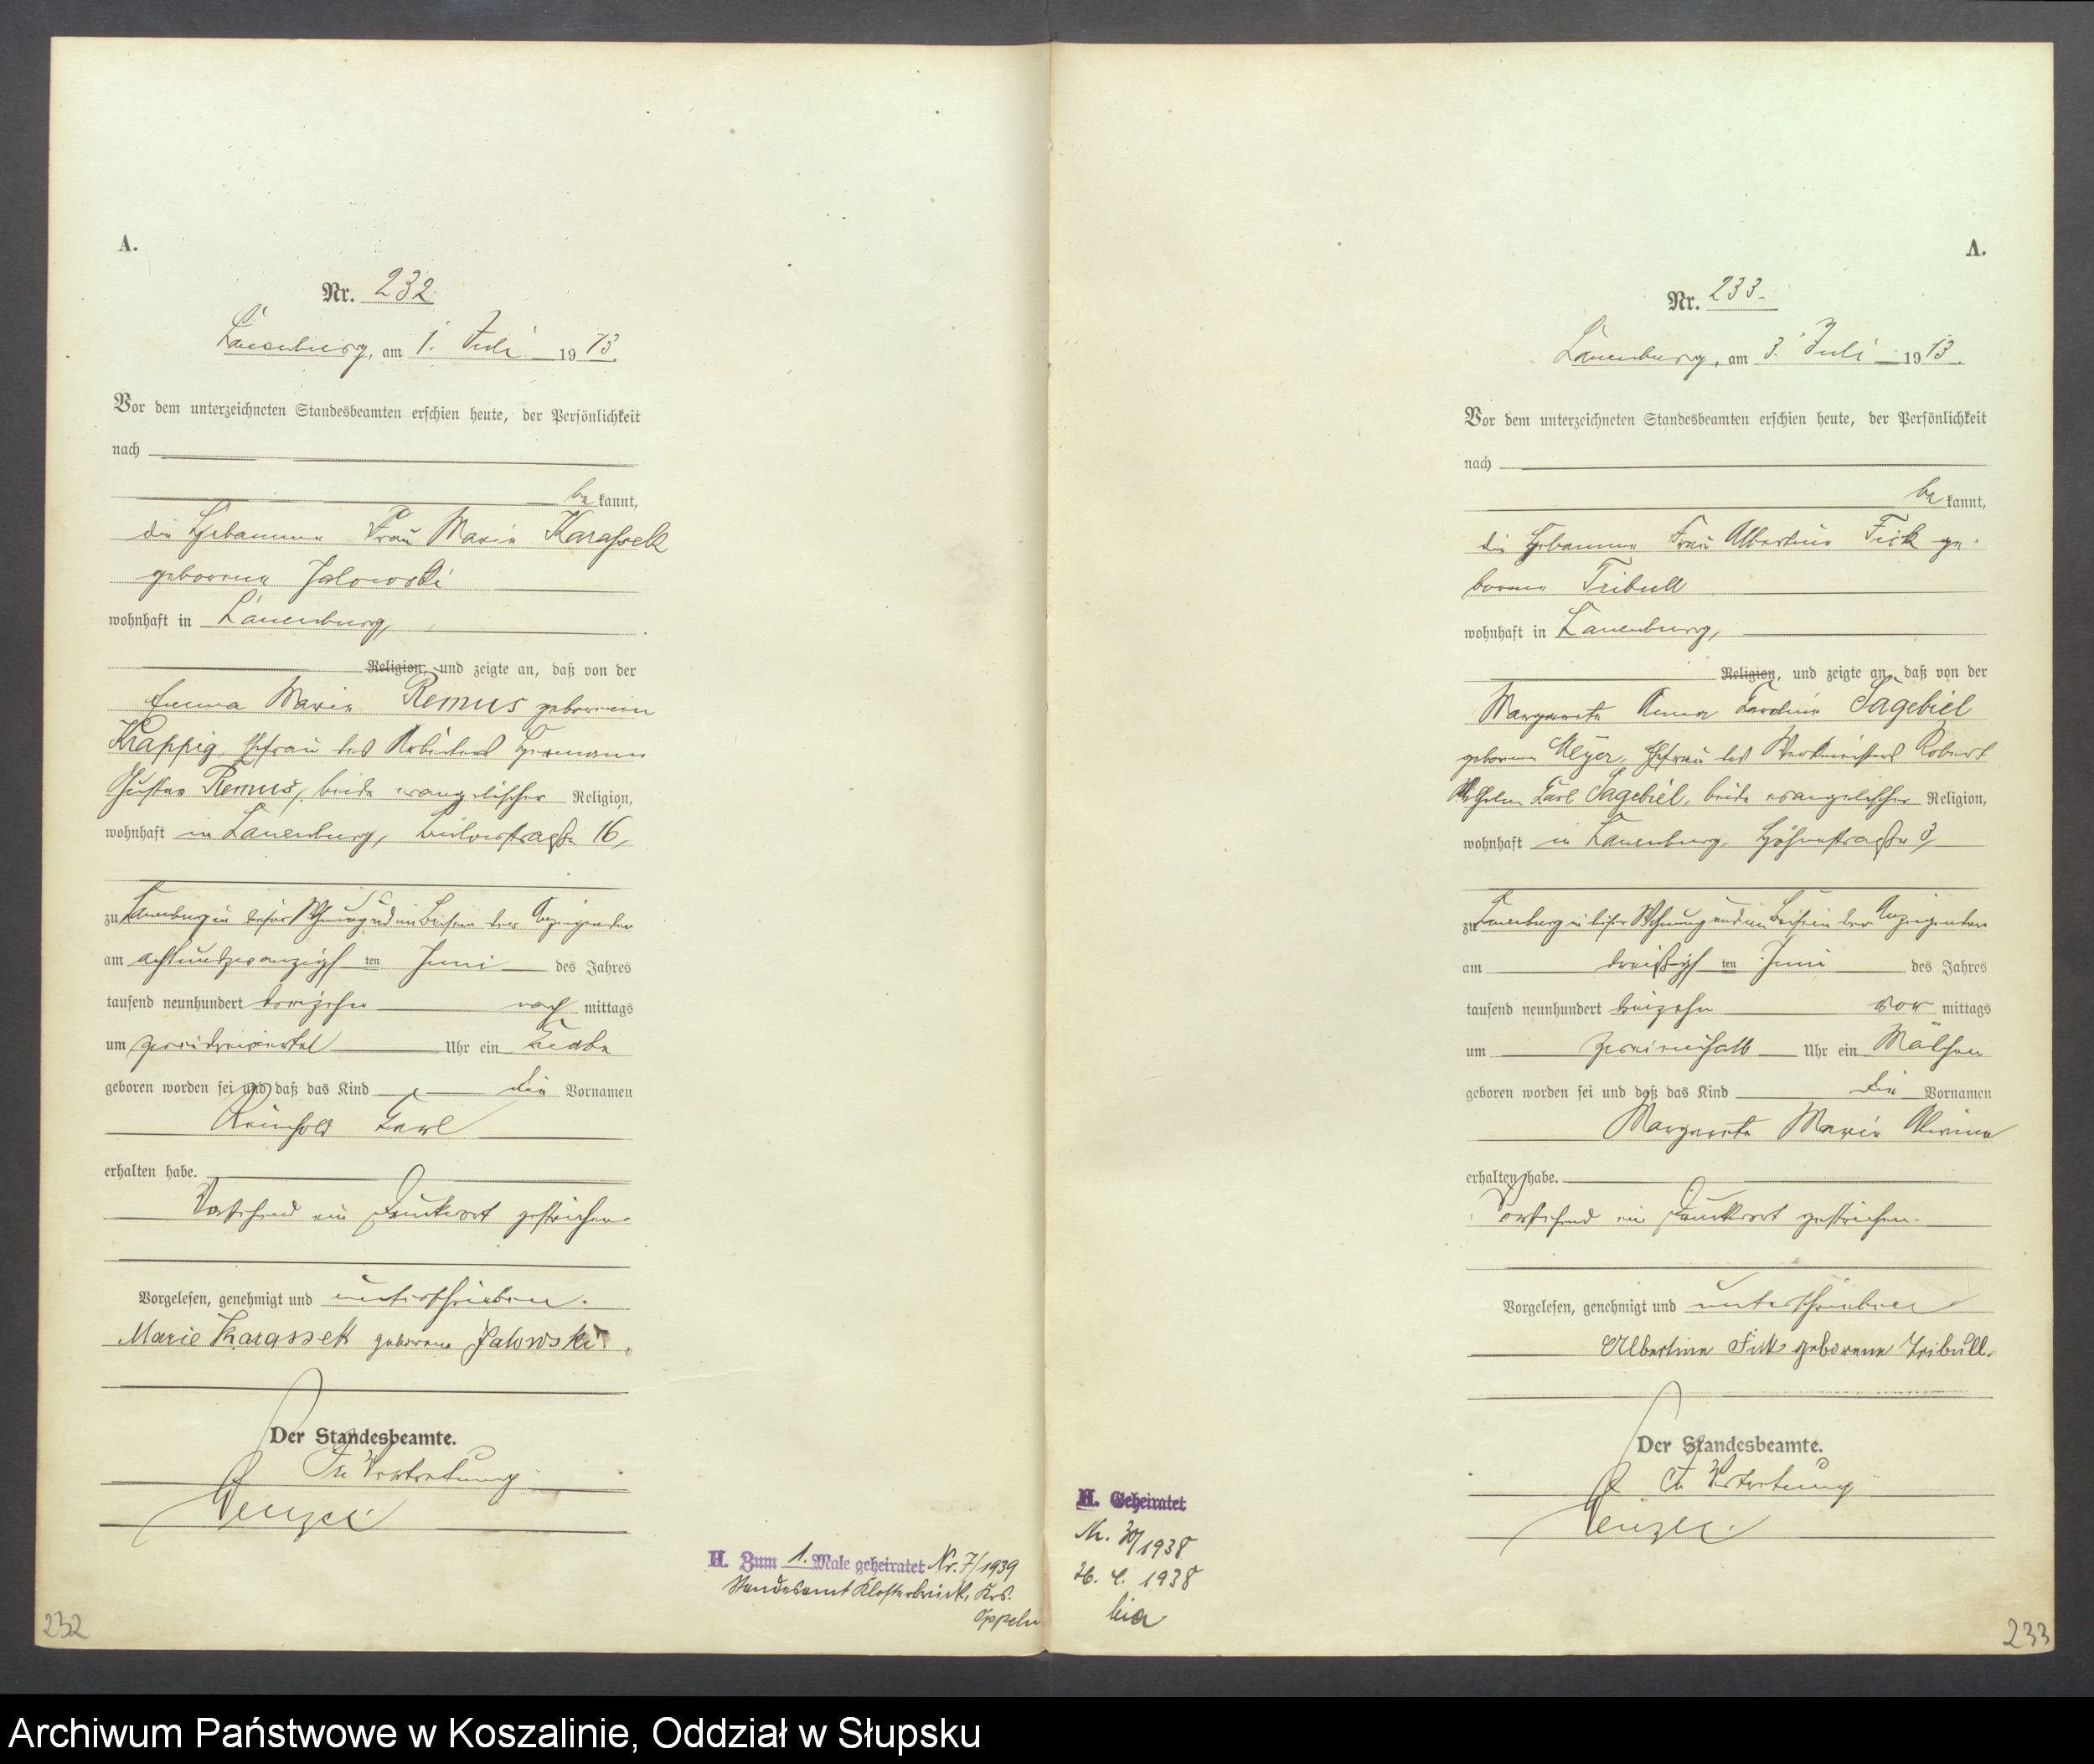 A.
Nr. 232
Lauenburg, am 1. Juli 1913.
Vor dem unterzeichneten Standesbeamten erschien heute, der Persönlichkeit
nach
be kannt,
die Hebamme Frau Marie Karassek
geborene Jalowski
wohnhaft in Lauenburg,
Religion, und zeigte an, daß von der
Emma Marie Remus geborenen
Krappig, Ehefrau des Arbeiters Hermann
Gustav Remus, beide evangelischer Religion,
wohnhaft in Lauenburg, 16,
zu Lauenburg in dieser Wohnung und im Beisein der Anzeigenden
am achtundzwanzigsten Juni des Jahres
tausend neunhundert dreizehn nach mittags
um zweidreiviertel Uhr ein Knabe
geboren worden sei und daß das Kind die Vornamen
Reinhold Karl
erhalten habe.
Vorstehend ein Druckwort gestrichen.
Vorgelesen, genehmigt und unterschrieben.
Marie Karassek geborene Jalowski.
Der Standesbeamte.
In Vertretung
Wenzel
H. Zum 1. Male geheiratet Nr. 7/1939
Standesamt Klosterbrück, Krs.
Oppeln
232
A.
Nr. 233.
Lauenburg, am 3. Juli 1913.
Vor dem unterzeichneten Standesbeamten erschien heute, der Persönlichkeit
nach
be kannt,
die Hebamme Frau Albertine Fick ge-
borene Tribull
wohnhaft in Lauenburg,
Religion, und zeigte an, daß von der
Margarete Anna Karoline Sagebiel
geborenen Meyer, Ehefrau des Werkmeisters Robert
Wilhelm Karl Sagebiel, beide evangelischer Religion,
wohnhaft in Lauenburg, Höhnestraße 3,
zu Lauenburg in dieser Wohnung und im Beisein der Anzeigenden
am dreißigsten Juni des Jahres
tausend neunhundert dreizehn vor mittags
um zweieinhalb Uhr ein Mädchen
geboren worden sei und daß das Kind die Vornamen
Margarete Marie
erhalten habe.
Vorstehend ein Druckwort gestrichen.
Vorgelesen, genehmigt und unterschrieben
Albertine Fick geborene Tribull.
Der Standesbeamte.
In Vertretung
Wenzel.
H. Geheiratet
Nr. 1938
26. 4. 1938
hier
233
Archiwum Państwowe w Koszalinie, Oddział w Słupsku